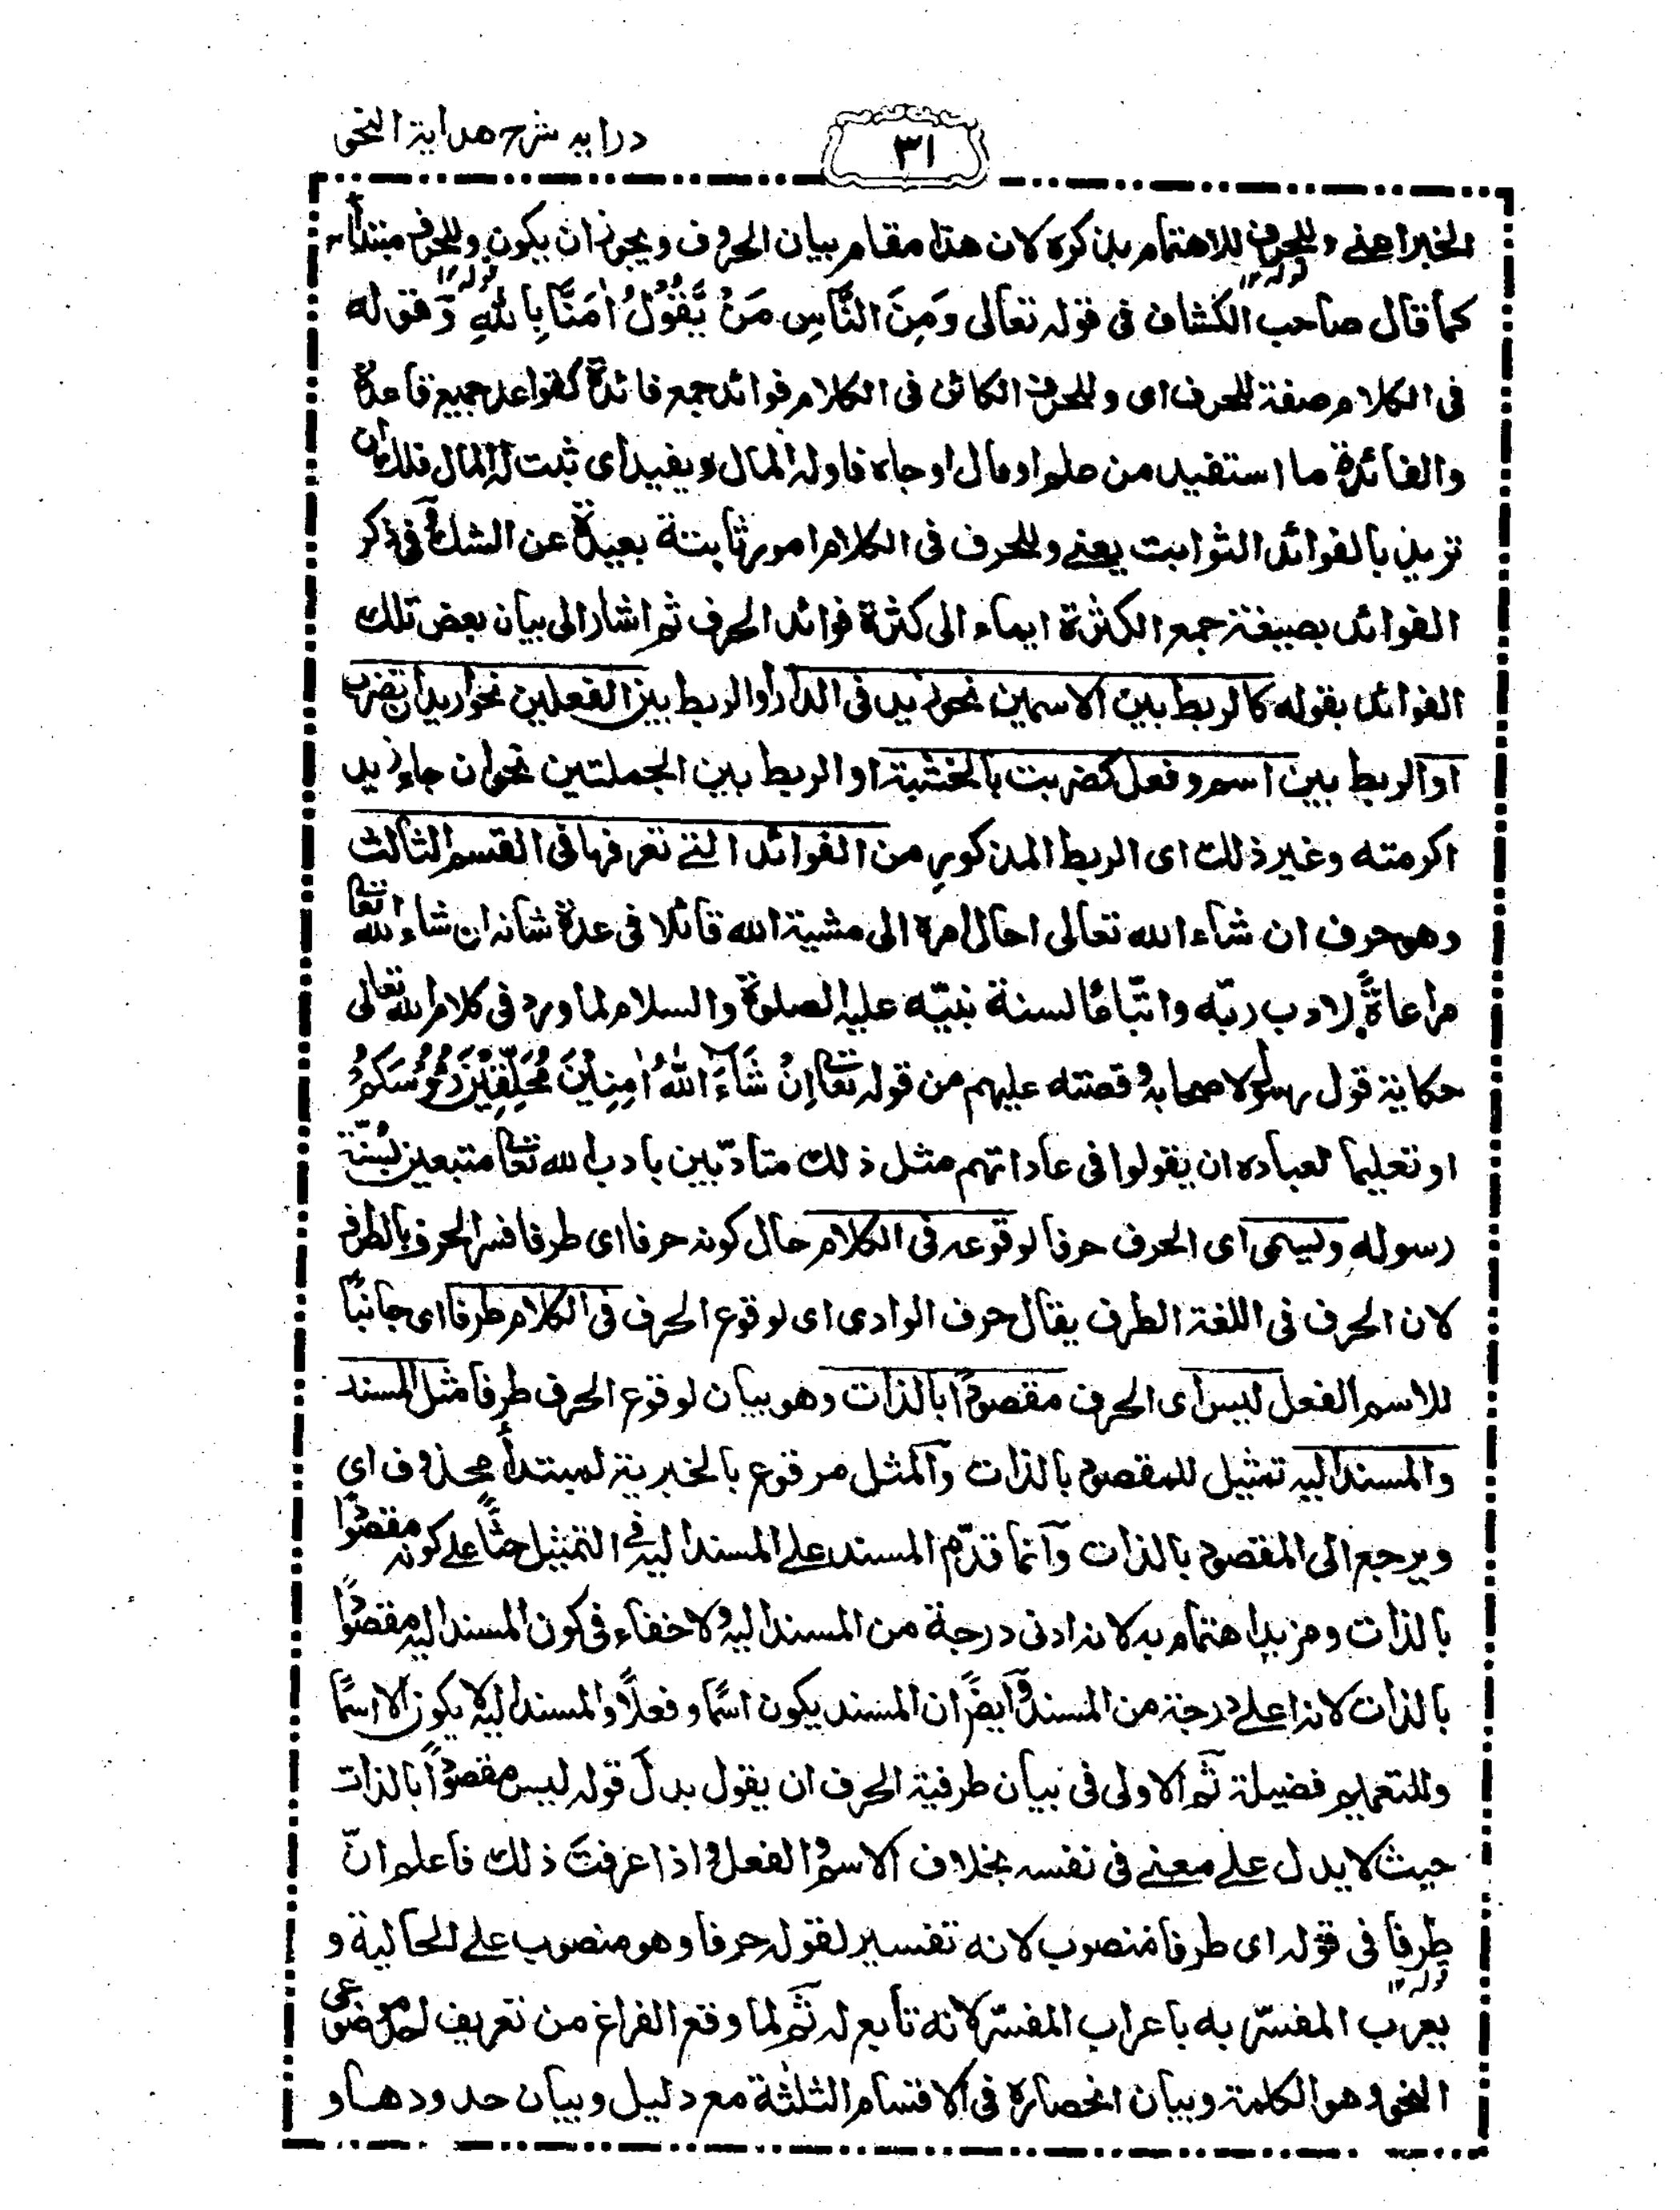 درايه شرح هداية النحو
٣١
الخبر اعنے وللحرف للاهتمام بذكره لان هذا مقام بيان الحروف ويجوز ان يكون وللحرف مبتدأ
قوله ١٢ قوله ١٢
كما قال صاحب الكشاف فى قوله تعالى وَمِنَ النَّاسِ مَنْ يَّقُوْلُ اٰمَنَّا بِاللهِ وَقوله
فى الكلام صفة للحرف اى وللحرف الكائن فى الكلام فوائد جمع فائدة كقواعد جميع قاعدة
والفائدة ما استفيد من علم او مال او جاه فاوله المال ويفيد اى ثبت له المال فلك ان
تريد بالفوائد الثوابت يعنے وللحرف فى الكلام امور ثابتة بعيدة عن الشك وَفى ذكر
الفوائد بصيغة جمع الكثرة ايماء الى كثرة فوائد الحرف ثم اشار الى بيان بعض تلك
الفوائد بقوله كالربط بين الاسمين نحو زيد فى الدار او الربط بين الفعلين نحو اريد ان تضرب
او الربط بين اسم وفعل كضربت بالخشبة او الربط بين الجملتين نحو ان جاء زيد
اكرمته وغير ذلك اى الربط المذكور من الفوائد التے تعرفها فى القسم الثالث
وهو حرف ان شاء الله تعالى احال امره الى مشية الله قائلا فى عدة شانه ان شاء الله تعا
مراعاةً لادب ربّه واتّباعًا لسنة نبيّه عليه الصلوة والسلام لما ورد فى كلام الله تعالى
حكاية قول رسوله لاصحابه وقصته عليهم من قوله تعا اِنْ شَآءَ اللهُ اٰمِنِيْنَ مُحَلِّقِيْنَ رُءُوْسَكُمْ
او تعليما لعباده ان يقولوا فى عاداتهم مثل ذلك متادّبين بادب الله تعا متبعين لسُنّة
رسوله ويسمى اى الحرف حرفا لوقوعه فى الكلام حال كونه حرفا اى طرفا فسر الحرف بالطرف
لان الحرف فى اللغة الطرف يقال حرف الوادى اى لوقوع الحرف فى الكلام طرفا اى جانبًا
للاسم والفعل ليس اى الحرف مقصودًا بالذات وهو بيان لوقوع الحرف طرفا مثل المسند
والمسند اليه تمثيل للمقصود بالذات وَالمثل مرفوع بالخبرية لمبتدأ محذوف اى
ويرجع الى المقصود بالذات وَانما قدّم المسند علے المسند اليه فے التمثيل حثًّا علے كونه مقصودًا
بالذات ومزيد اهتمام به لانه ادنى درجة من المسند اليه ولا خفاء فى كون المسند اليه مقصودًا
بالذات لانه اعلے درجة من المسند وَايضًا ان المسند يكون اسمًا وفعلاً والمسند اليه لا يكون الا اسمًا
وللتعميم فضيلة ثم الاولى فى بيان طرفية الحرف ان يقول بدل قوله ليس مقصودًا بالذات
حيث لا يدل علے معنے فى نفسه بخلاف الاسم والفعل واذا عرفتَ ذلك فاعلم انّ
طرفا فى قوله اى طرفا منصوب لانه تفسير لقوله حرفا وهو منصوب علے الحالية و
قوله ١٢
يعرب المفسّر به باعراب المفسّر لانه تابع له ثم لما وقع الفراغ من تعريف احد موضوعى
النحو وهو الكلمة وبيان انحصاره فى الاقسام الثلٰثة مع دليل وبيان حدودها و